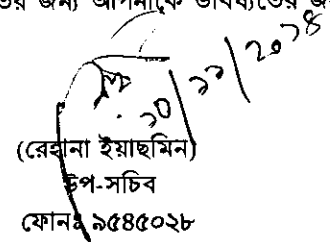 জন্য আপনাকে ভবিষ্যতের জন্য
১০/১১/২০১৪
(রেহানা ইয়াছমিন)
উপ-সচিব
ফোনঃ ৯৫৪৫০২৮